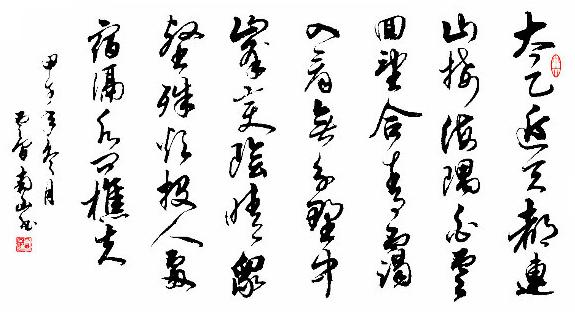 太乙近天都連
山接海隅白雲
回望合青靄
入看無分野中
峯變陰晴眾
壑殊欲投人處
宿隔水問樵夫
甲午冬月
南山书